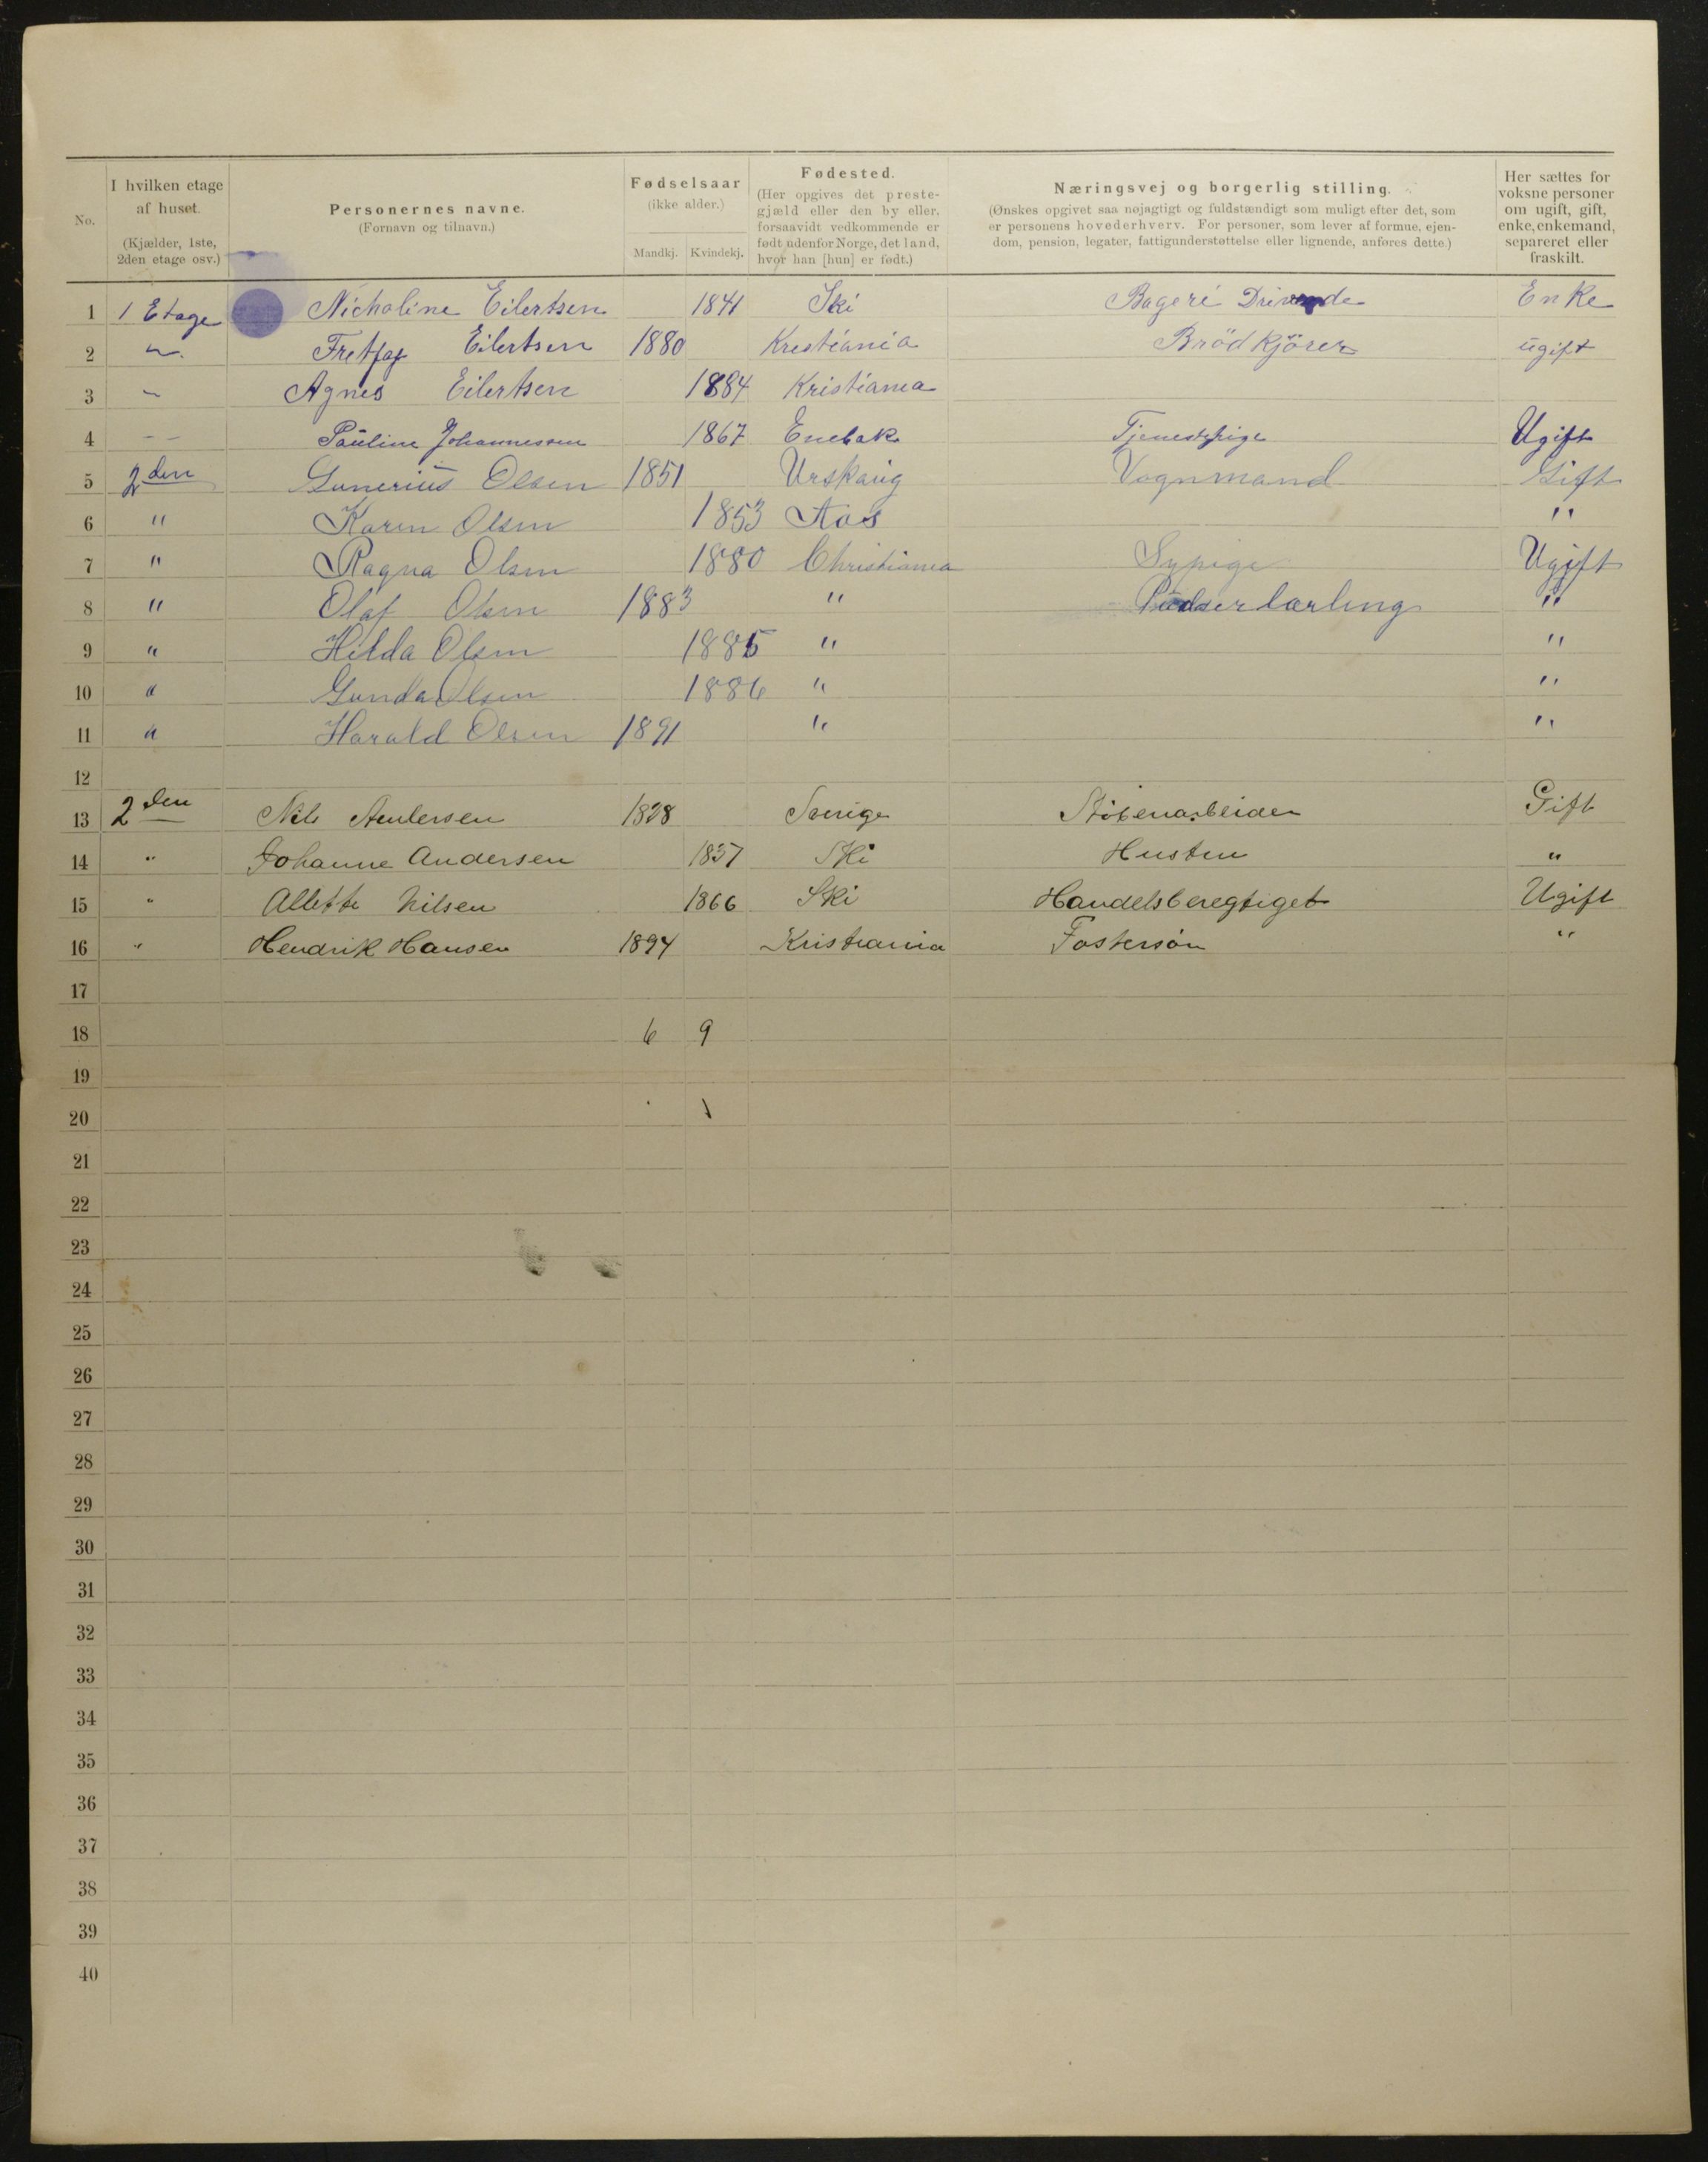 No.
I hvilken etage af huset. (Kjælder, 1ste, 2den etage osv.)
Personernes navne. (Fornavn og tilnavn.)
Fødselsaar (ikke alder.) Mandkj. Kvindekj.
Fødested. (Her opgives det prestegjæld eller den by eller, forsaavidt vedkommende er født udenfor Norge, det land, hvor han [hun] er født.)
Næringsvej og borgerlig stilling. (Ønskes opgivet saa nøjagtigt og fuldstændigt som muligt efter det, som er personens hovederhverv. For personer, som lever af formue, ejendom, pension, legater, fattigunderstøttelse eller lignende, anføres dette.)
Her sættes for voksne personer om ugift, gift, enke, enkemand, separeret eller fraskilt.
1 1 Etage Nicholine Eilertsen 1841 Ski Bageri Drivende Enke
2 " Eilertsen 1880 Kristiania Brödkjörer ugift
3 " Agnes Eilertsen 1884 Kristiania
4 " Pauline Johannessen 1867 Enebak Tjenestpige Ugift
5 2den Gunerius Olsen 1851 Urskoug Vognmand Gift
6 " Karen Olsen 1853 Aas "
7 " Ragna Olsen 1880 Christiania Sypige Ugift
8 " Olaf Olsen 1883 " Pudserlærling "
9 " Hilda Olsen 1885 " "
10 " Gunda Olsen 1886 " "
11 " Harald Olsen 1891 " "
12
13 2den Nils Andersen 1828 Sverige Støberiarbeider Gift
14 " Johanne Andersen 1837 Ski Hustru "
15 " Allette Nilsen 1866 Ski Handelsberegtiget Ugift
16 " Hendrik Hansen 1894 Kristiania Fostersøn "
17
18 6 9
19
20
21
22
23
24
25
26
27
28
29
30
31
32
33
34
35
36
37
38
39
40